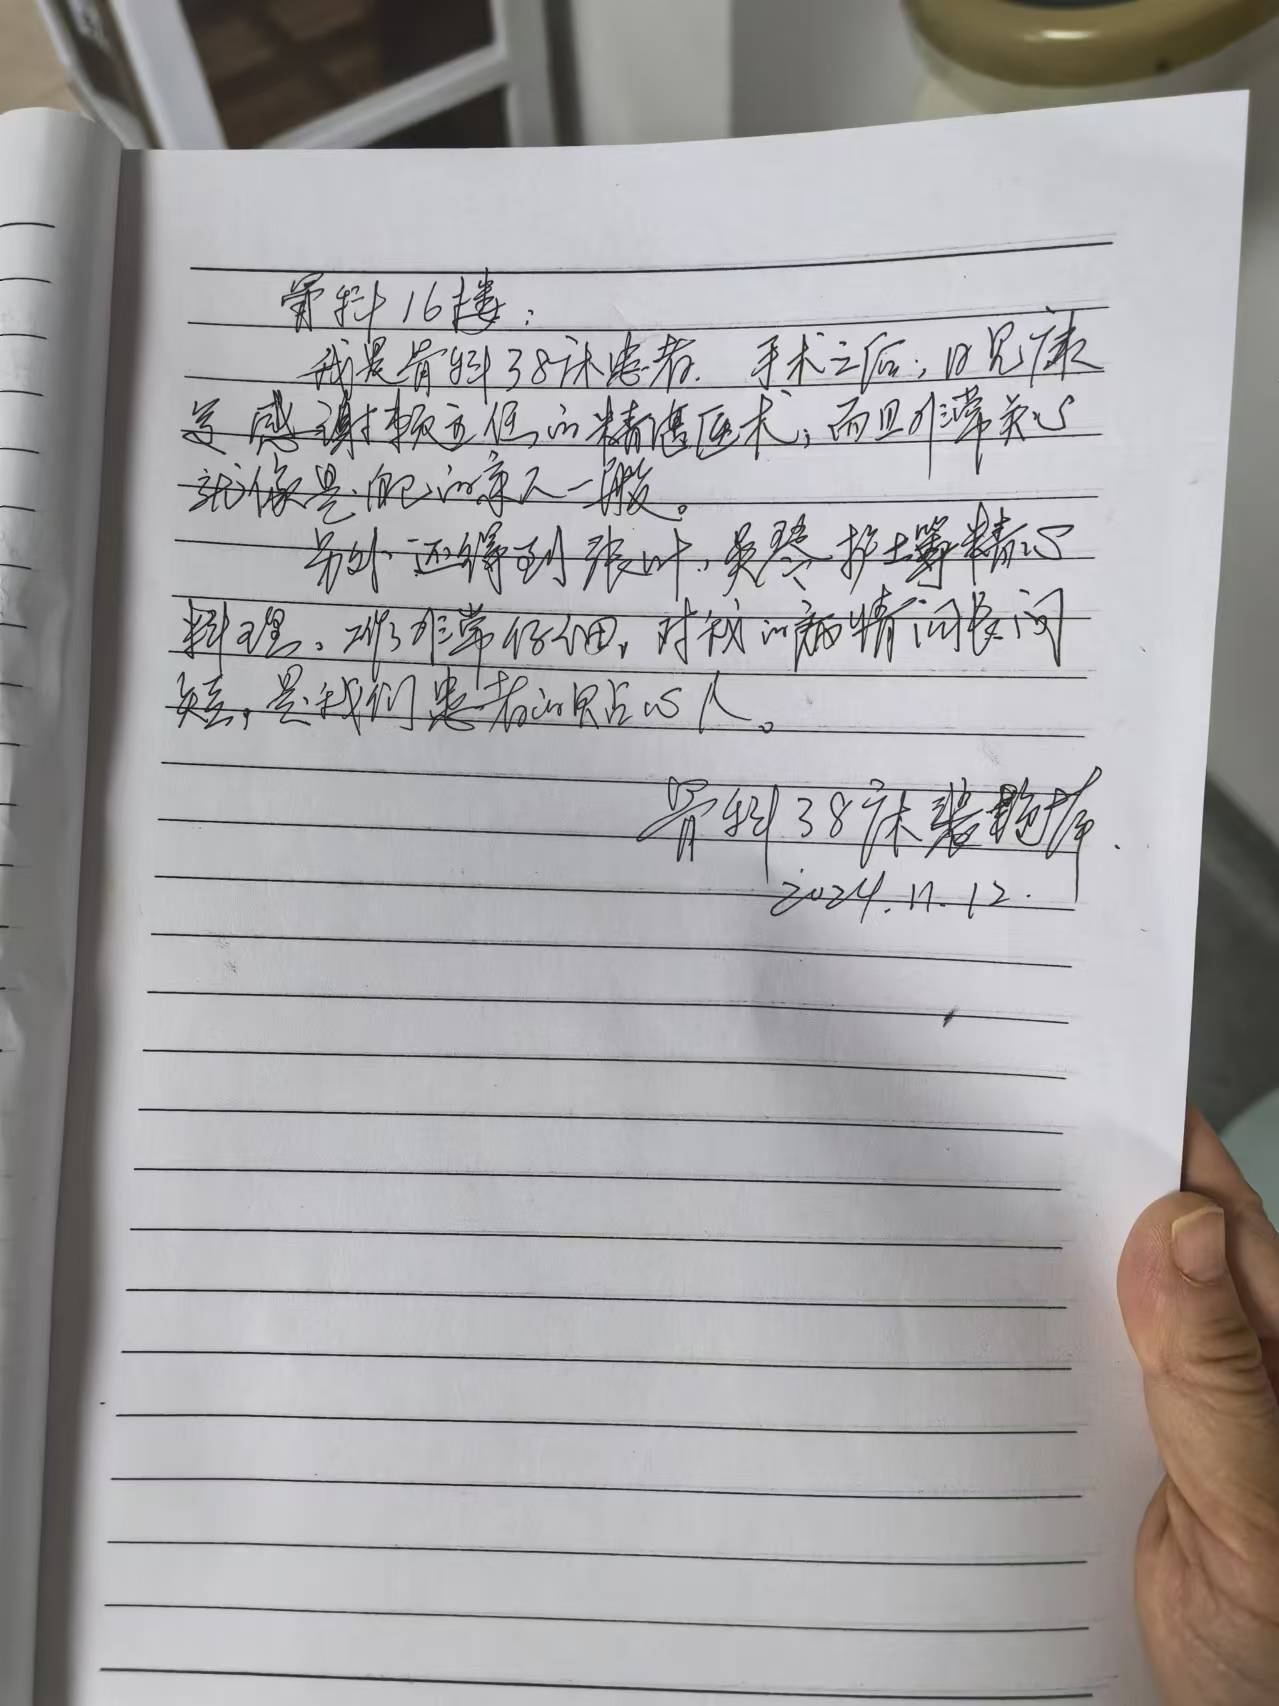 骨科16楼：
我是骨科38床患者.手术之后；日见康
复感谢顾主任的精湛医术，而且非常关心
就像是自己的亲人一般。
另外还得到张叶、吴琴护士等精心
料理。工作非常仔细，对我的病情问长问
短，是我们患者的贴心人。
骨科38床
2024.11.12.